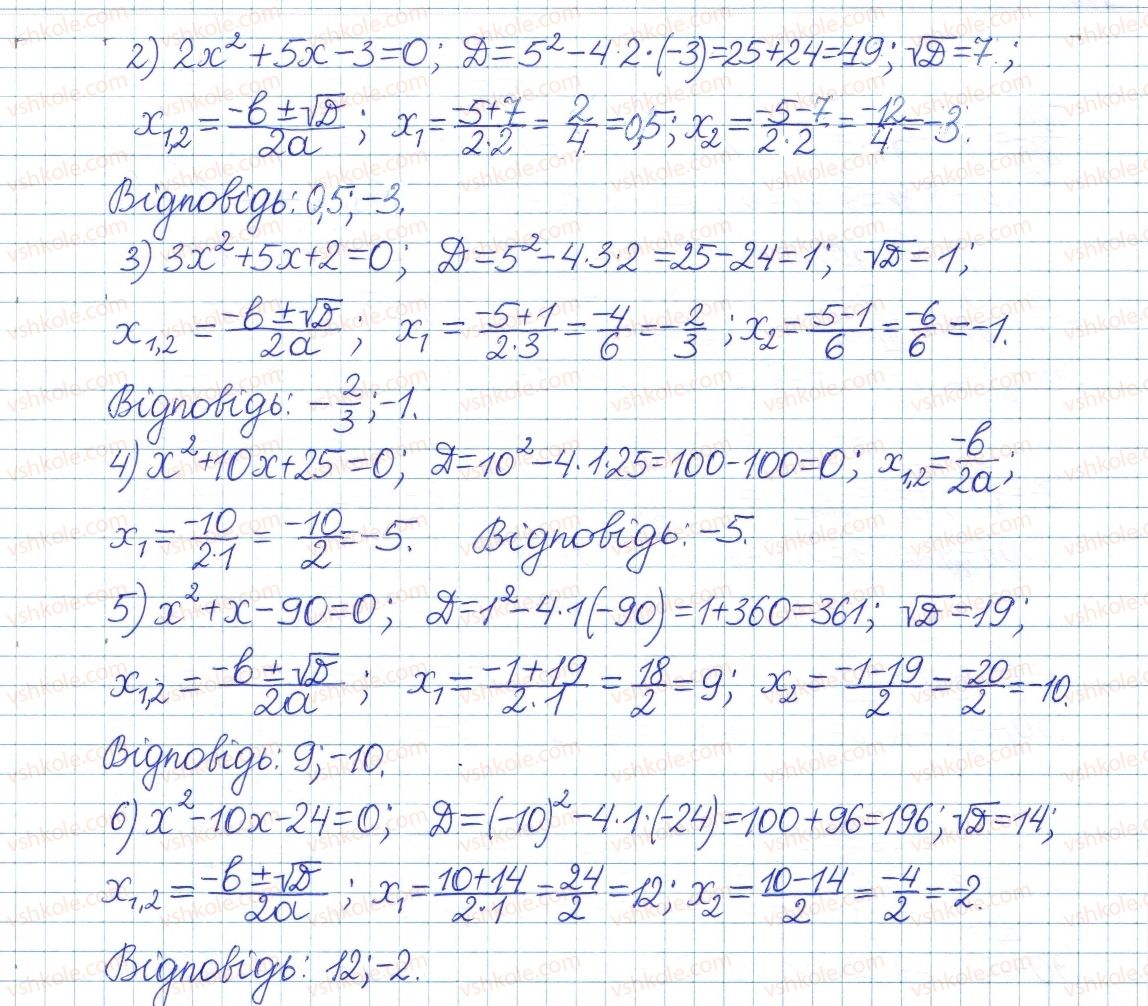 2) 2x² + 5x − 3 = 0; D = 5² − 4·2·(−3) = 25 + 24 = 49; √D = 7;
x₁,₂ = (−b ± √D)/(2a); x₁ = (−5+7)/(2·2) = 2/4 = 0,5; x₂ = (−5−7)/(2·2) = −12/4 = −3.
Відповідь: 0,5; −3.
3) 3x² + 5x + 2 = 0; D = 5² − 4·3·2 = 25 − 24 = 1; √D = 1;
x₁,₂ = (−b ± √D)/(2a); x₁ = (−5+1)/(2·3) = −4/6 = −2/3; x₂ = (−5−1)/6 = −6/6 = −1.
Відповідь: −2/3; −1.
4) x² + 10x + 25 = 0; D = 10² − 4·1·25 = 100 − 100 = 0; x₁,₂ = −b/(2a);
x₁ = −10/(2·1) = −10/2 = −5. Відповідь: −5.
5) x² + x − 90 = 0; D = 1² − 4·1(−90) = 1 + 360 = 361; √D = 19;
x₁,₂ = (−b ± √D)/(2a); x₁ = (−1+19)/(2·1) = 18/2 = 9; x₂ = (−1−19)/2 = −20/2 = −10.
Відповідь: 9; −10.
6) x² − 10x − 24 = 0; D = (−10)² − 4·1·(−24) = 100 + 96 = 196; √D = 14;
x₁,₂ = (−b ± √D)/(2a); x₁ = (10+14)/(2·1) = 24/2 = 12; x₂ = (10−14)/2 = −4/2 = −2.
Відповідь: 12; −2.